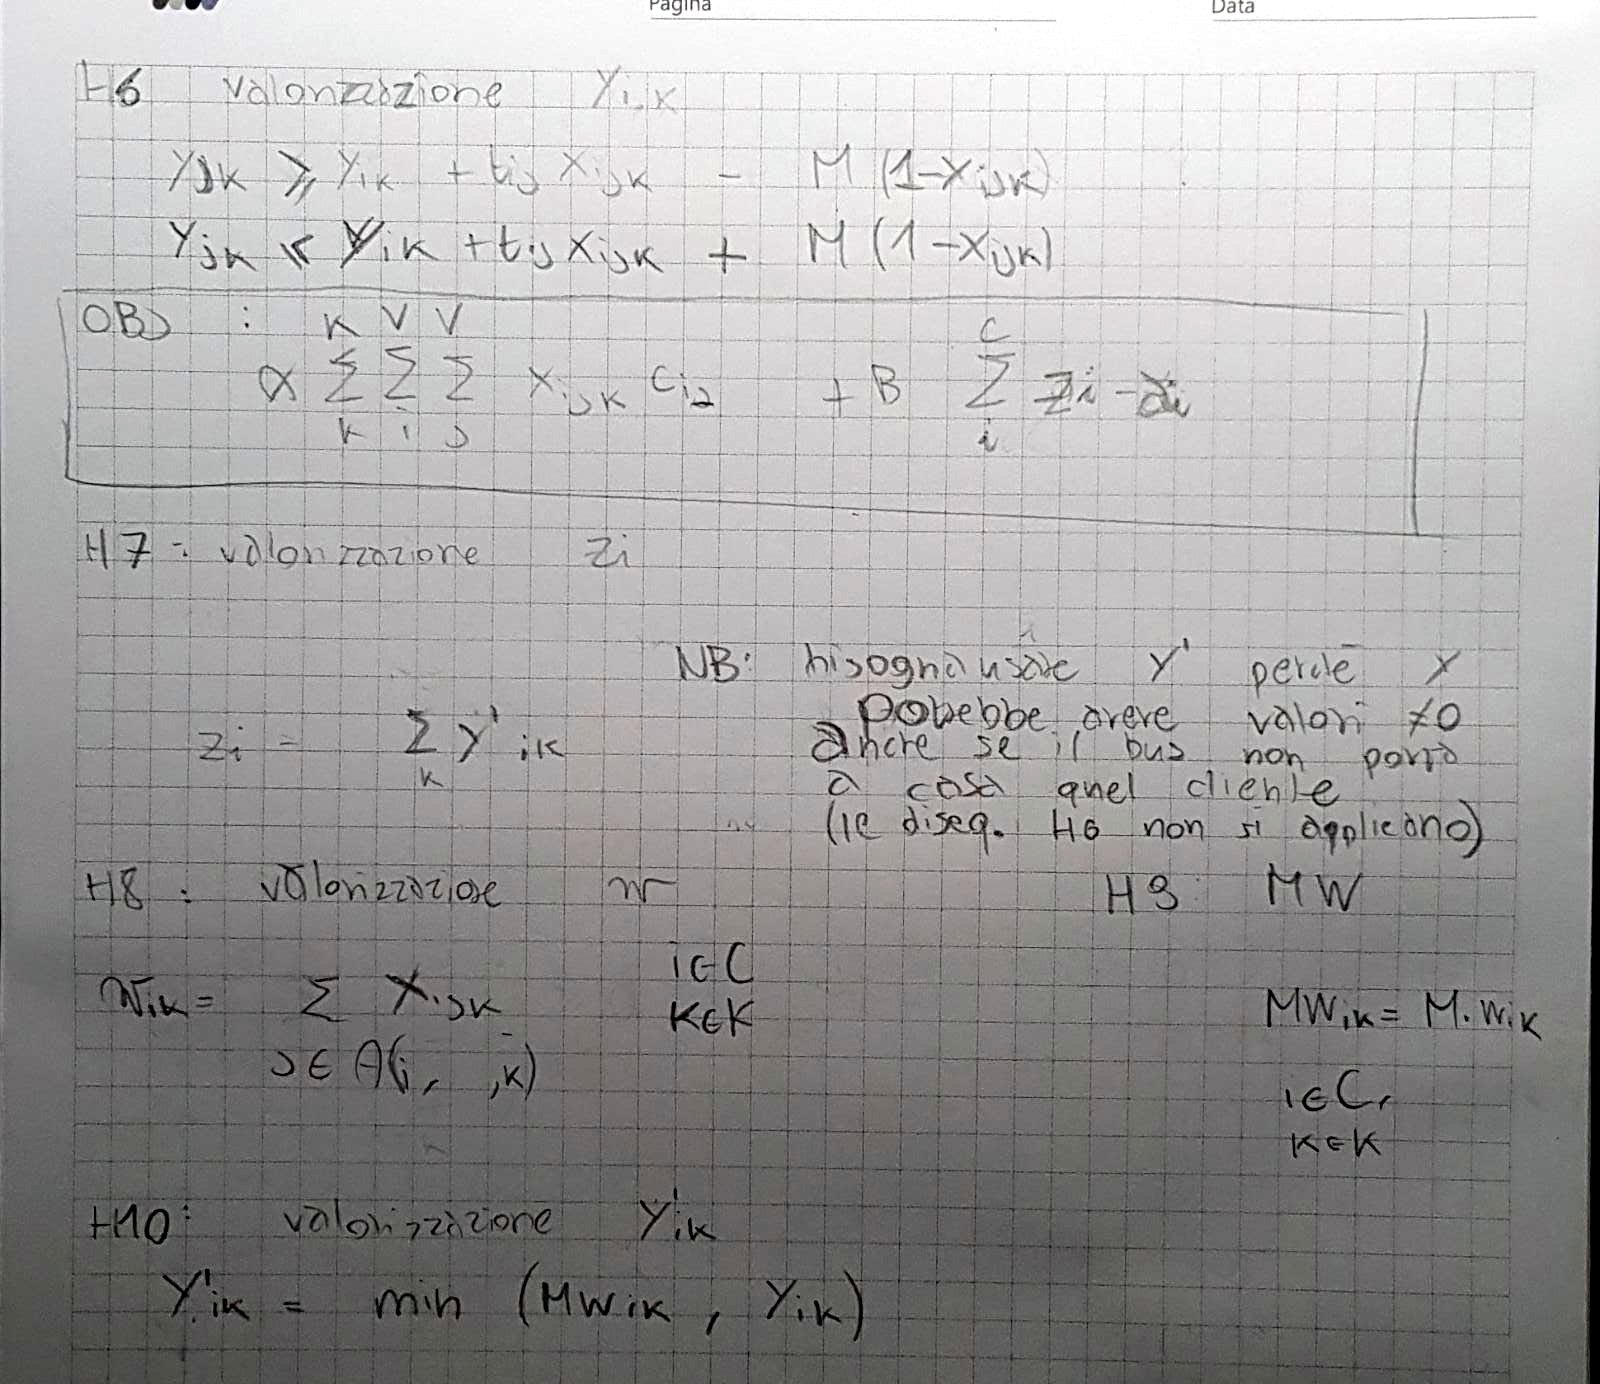 Pagina Data
H6 valorizzazione Yik
Yjk ≥ Yik + tij Xijk - M (1-Xijk)
Yjk ≤ Yik + tij Xijk + M (1-Xijk)
OBJ : K V V C
α Σ Σ Σ Xijk Cij + B Σ Zi -
k i j i
H7 : valorizzazione Zi
NB: bisogna usare Y' perché Y
potrebbe avere valori ≠0
Zi = Σ Y'ik anche se il bus non porta
k a casa quel cliente
(le diseq. H6 non si applicano)
H8 : valorizzazione w H9: MW
i∈C
Wik = Σ Xijk k∈K MWik = M·Wik
j∈A(i, ,k)
i∈C,
k∈K
H10: valorizzazione Y'ik
Y'ik = min (MWik , Yik)